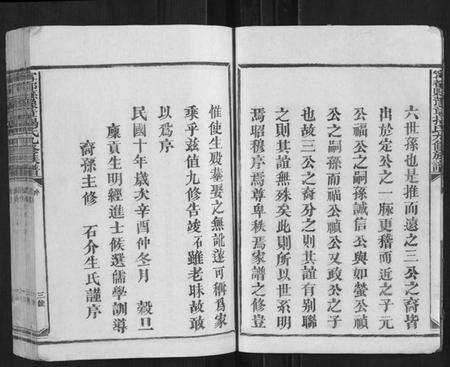 六世孫也是推而遠之三公之裔皆
出於定公之一脈更穡而近之子元
公福公之嗣孫誠信公與如螢公禎
公之嗣孫而福公禎公又政公之子
也故三公之裔分之則其誼有别聯
之則其誼無殊矣此則所以世系明
焉昭穆序焉尊卑秩焉家譜之修豈
惟使生殁葬娶之無訛遂可稱爲家
乘乎兹值九修告竣石雖老昧故敢
以爲序
民國十年歲次辛酉仲冬月 穀旦
廩貢生明經進士候選儒學訓導
裔孫主修 石介生氏謹序